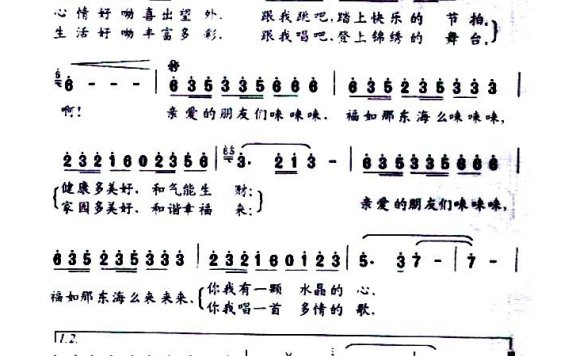 心情好呦喜出望外, 跟我跳吧, 踏上快乐的 节 拍,
生活好呦丰富多彩, 跟我唱吧, 登上锦绣的 舞 台,
6 - - - 6 3 5 3 5 6 6 6 6 3 5 2 3 5 3 3 3
啊! 亲爱的朋友们咪咪咪, 福如那东海么咪咪咪,
2 3 2 1 6 0 2 3 5 6 3· 2 1 3 - 6 3 5 3 3 5 6 6 6
健康多美好, 和气能生 财;
家园多美好, 和谐幸福 来; 亲爱的朋友们咪咪咪,
6 3 5 2 3 5 3 3 3 2 3 2 1 6 0 1 2 3 5· 3 7 - 7 -
福如那东海么来来来, 你我有一颗 水晶的 心,
你我唱一首 多情的 歌,
1.2.